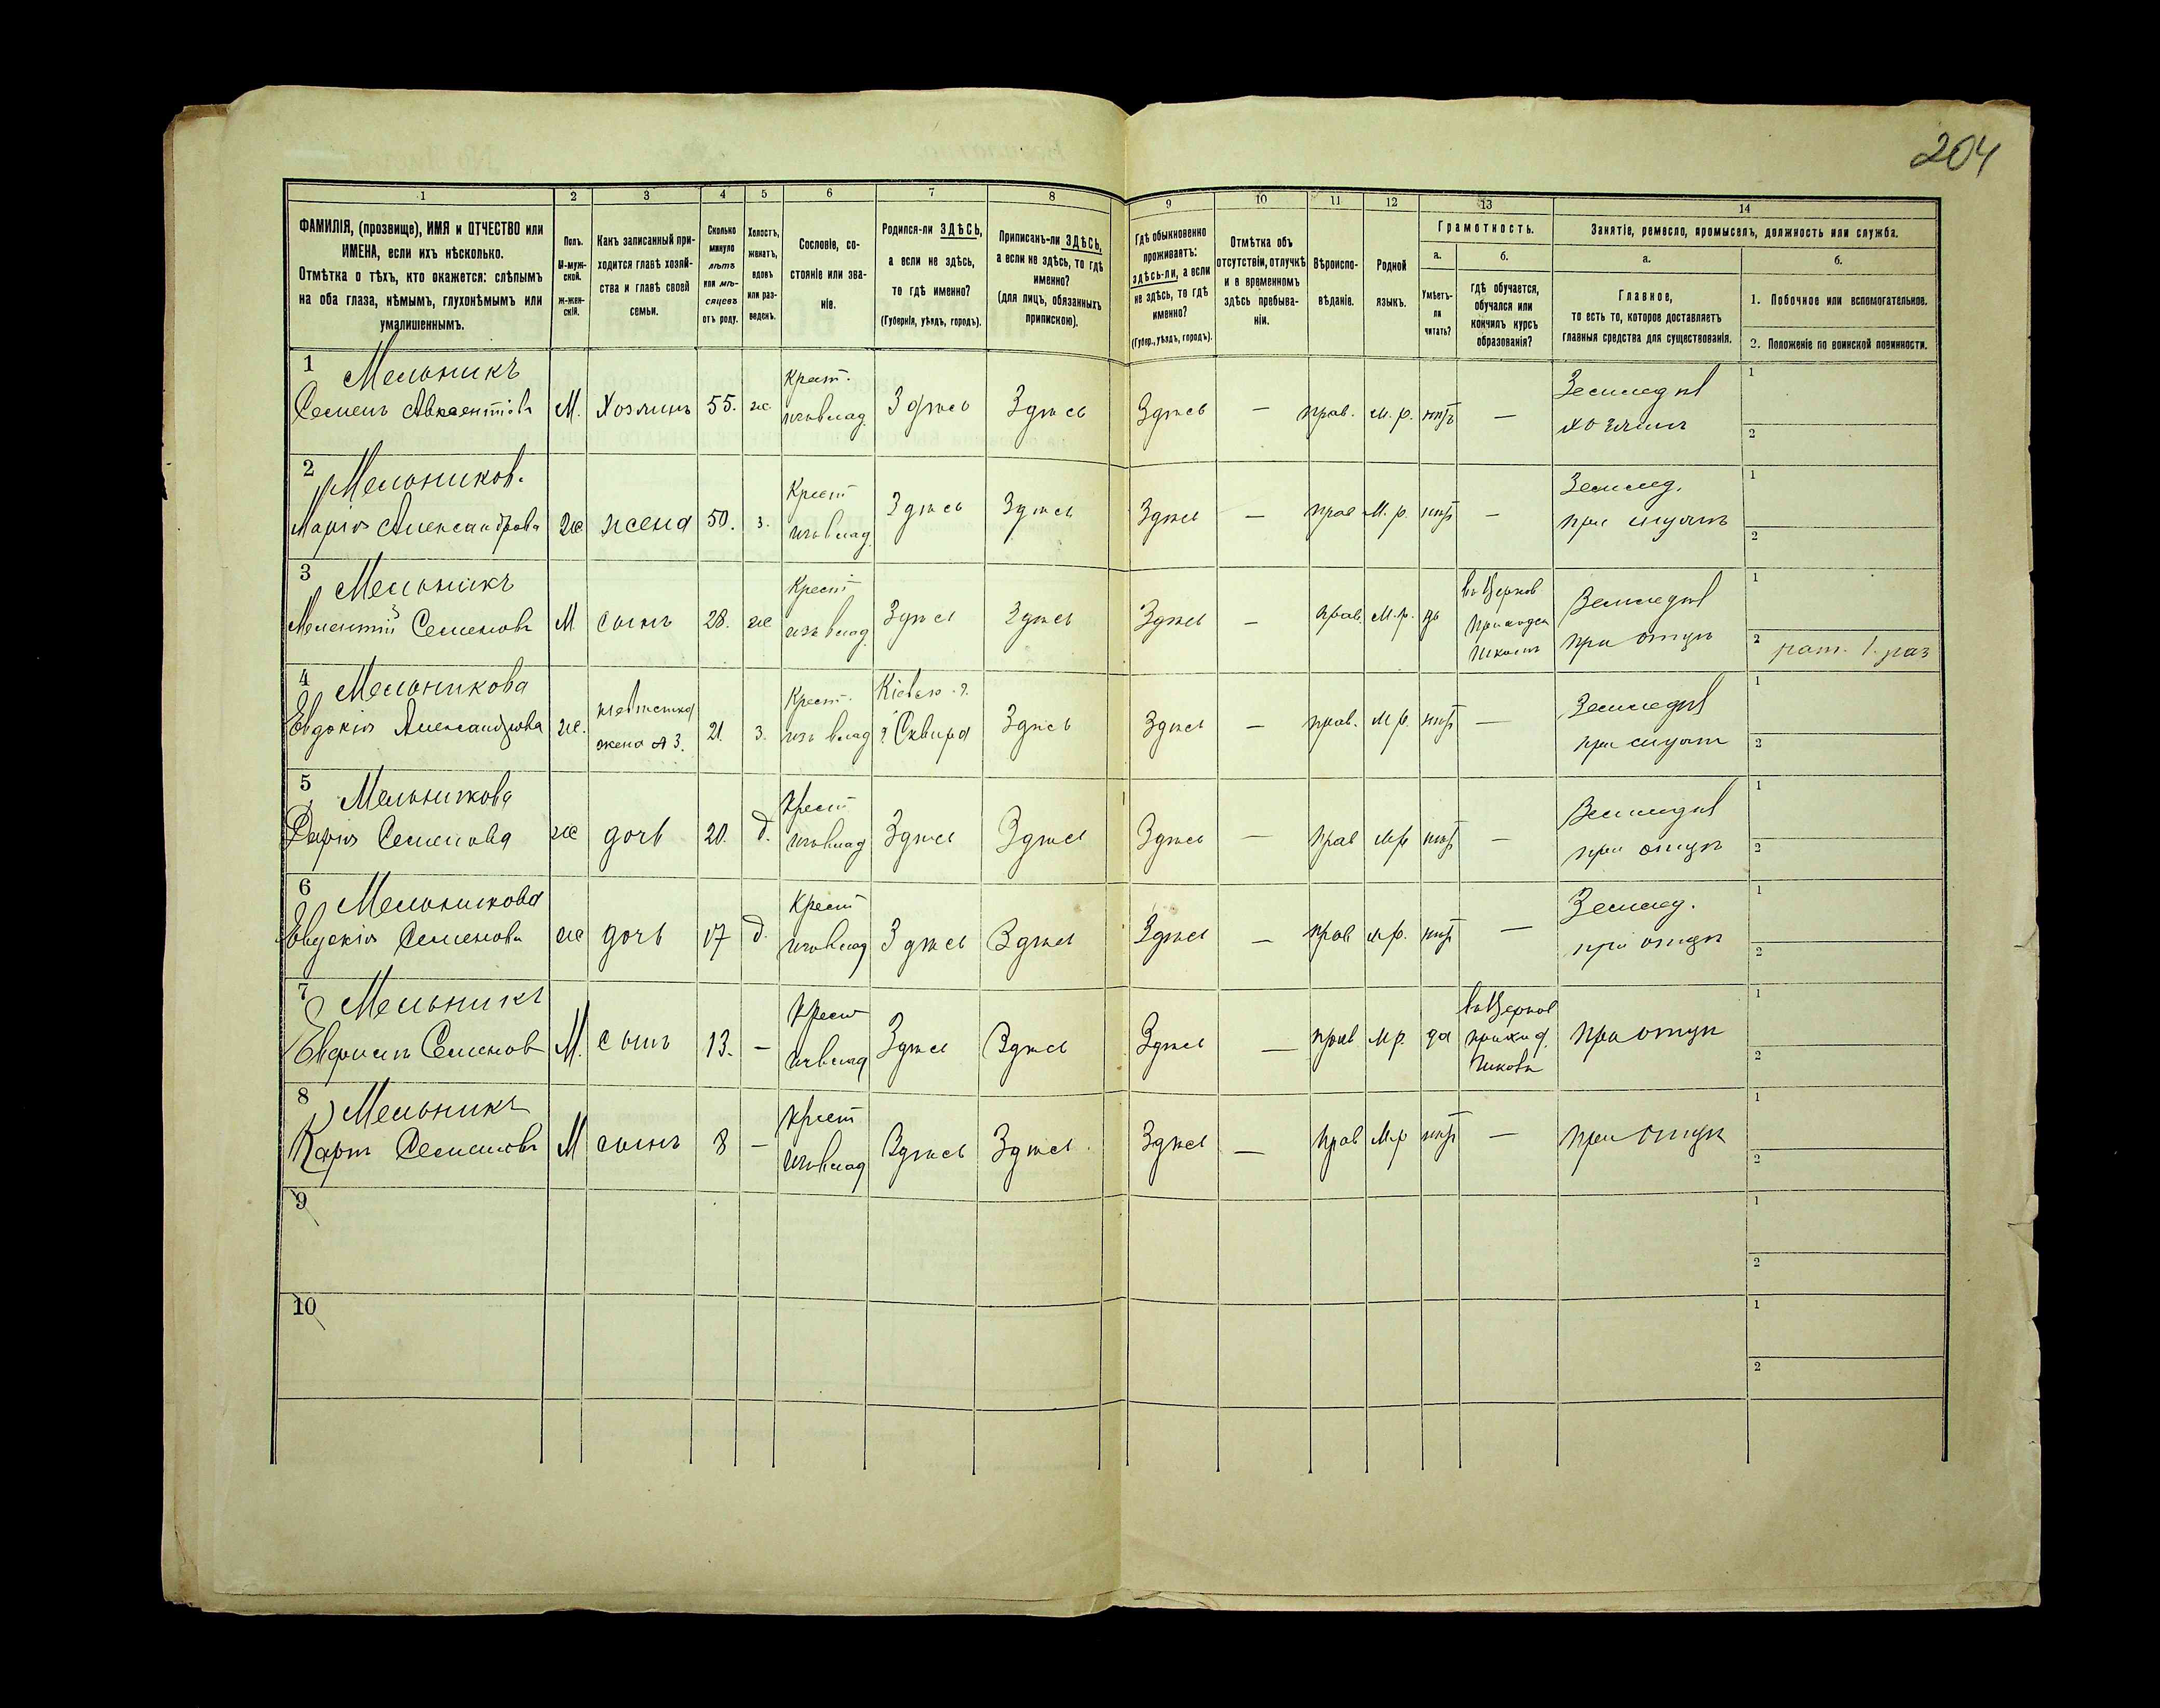 204
1 2 3 4 5 6 7 8 9 10 11 12 13 14
ФАМИЛІЯ, (прозвище), ИМЯ и ОТЧЕСТВО или
ИМЕНА, если ихъ нѣсколько.
Отмѣтка о тѣхъ, кто окажется: слѣпымъ
на оба глаза, нѣмымъ, глухонѣмымъ или
умалишеннымъ.
Полъ.
М-муж-
ской.
ж-жен-
скій.
Какъ записанный при-
ходится главѣ хозяй-
ства и главѣ своей
семьи.
Сколько
минуло
лѣтъ
или мѣ-
сяцевъ
отъ роду.
Холостъ,
женатъ,
вдовъ
или раз-
веденъ.
Сословіе, со-
стояніе или зва-
ніе.
Родился-ли ЗДѢСЬ,
а если не здѣсь,
то гдѣ именно?
(Губернія, уѣздъ, городъ).
Приписанъ-ли ЗДѢСЬ,
а если не здѣсь, то гдѣ
именно?
(для лицъ, обязанныхъ
припискою).
Гдѣ обыкновенно
проживаетъ:
здѣсь-ли, а если
не здѣсь, то гдѣ
именно?
(Губер., уѣздъ, городъ).
Отмѣтка объ
отсутствіи, отлучкѣ
и о временномъ
здѣсь пребыва-
ніи.
Вѣроиспо-
вѣданіе.
Родной
языкъ.
Грамотность.
а.
Умѣетъ-
ли
читать?
б.
гдѣ обучается,
обучался или
кончилъ курсъ
образованія?
Занятіе, ремесло, промыселъ, должность или служба.
а.
Главное,
то есть то, которое доставляетъ
главныя средства для существованія.
б.
1. Побочное или вспомогательное.
2. Положеніе по воинской повинности.
1 Мельникъ
Семенъ Авксентіевъ М. Хозяинъ 55. ж. Крест. изъ влад. Здѣсь Здѣсь Здѣсь — прав. м. р. нѣтъ — Земледѣл хозяинъ 1
2
2 Мельников.
Марія Александрова ж жена 50. з. Крест изъ влад. Здѣсь Здѣсь Здѣсь — прав М. р. нѣтъ — Землед. при мужѣ 1
2
3 Мельникъ
Мелентій Семеновъ М сынъ 28. ж Крест изъ влад. Здѣсь Здѣсь Здѣсь — прав. М. р. да въ Церков приходск школѣ Земледѣл при отцѣ 1
2 рат. 1. раз
4 Мельникова
Евдокія Александрова ж. невѣстка жена № 3. 21. з. Крест. изъ влад Кіевск. г. г. Сквира Здѣсь Здѣсь — прав. М р. нѣтъ — Земледѣл при мужѣ 1
2
5 Мельникова
Дарія Семенова ж дочь 20. д. Крест изъ влад Здѣсь Здѣсь Здѣсь — прав м р нѣтъ — Земледѣл при отцѣ 1
2
6 Мельникова
Евдокія Семенова ж дочь 17 д. Крест изъ влад Здѣсь Здѣсь Здѣсь — прав м р. нѣтъ — Землед. при отцѣ 1
2
7 Мельникъ
Семенов М. сынъ 13. — Крест изъ влад Здѣсь Здѣсь Здѣсь — прав М р. да въ Церков приход. школѣ при отцѣ 1
2
8 Мельникъ
Карпъ Семеновъ М сынъ 8 — Крест изъ влад Здѣсь Здѣсь Здѣсь — прав М р нѣтъ — при отцѣ 1
2
9 1
2
10 1
2